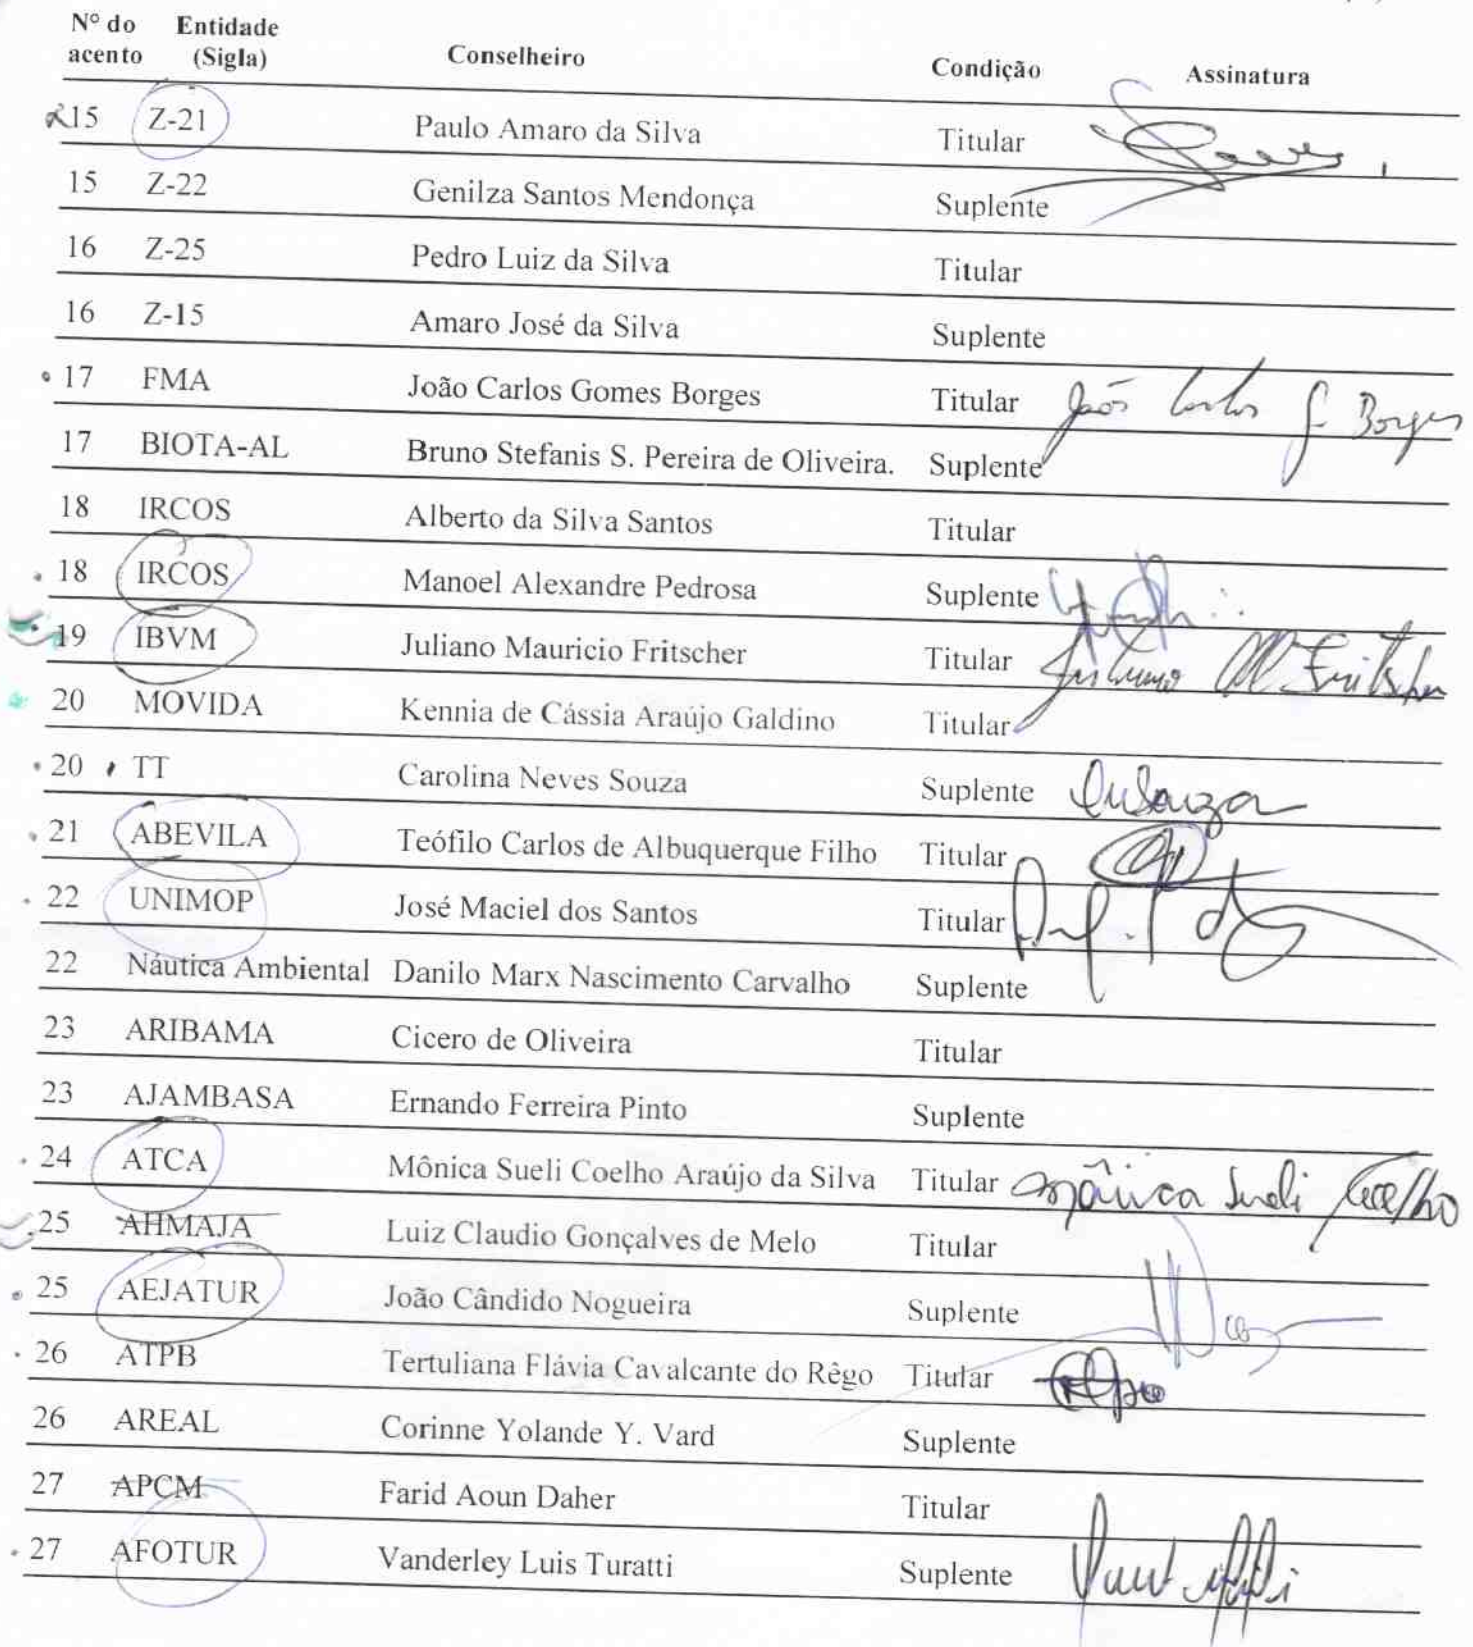 Nº do acento Entidade (Sigla) Conselheiro Condição Assinatura
15 Z-21 Paulo Amaro da Silva Titular
15 Z-22 Genilza Santos Mendonça Suplente
16 Z-25 Pedro Luiz da Silva Titular
16 Z-15 Amaro José da Silva Suplente
17 FMA João Carlos Gomes Borges Titular João Carlos G Borges
17 BIOTA-AL Bruno Stefanis S. Pereira de Oliveira. Suplente
18 IRCOS Alberto da Silva Santos Titular
18 IRCOS Manoel Alexandre Pedrosa Suplente
19 IBVM Juliano Mauricio Fritscher Titular Juliano M Fritscher
20 MOVIDA Kennia de Cássia Araújo Galdino Titular
20 TT Carolina Neves Souza Suplente
21 ABEVILA Teófilo Carlos de Albuquerque Filho Titular
22 UNIMOP José Maciel dos Santos Titular
22 Náutica Ambiental Danilo Marx Nascimento Carvalho Suplente
23 ARIBAMA Cicero de Oliveira Titular
23 AJAMBASA Ernando Ferreira Pinto Suplente
24 ATCA Mônica Sueli Coelho Araújo da Silva Titular Mônica Sueli Coelho
25 AHMAJA Luiz Claudio Gonçalves de Melo Titular
25 AEJATUR João Cândido Nogueira Suplente
26 ATPB Tertuliana Flávia Cavalcante do Rêgo Titular
26 AREAL Corinne Yolande Y. Vard Suplente
27 APCM Farid Aoun Daher Titular
27 AFOTUR Vanderley Luis Turatti Suplente